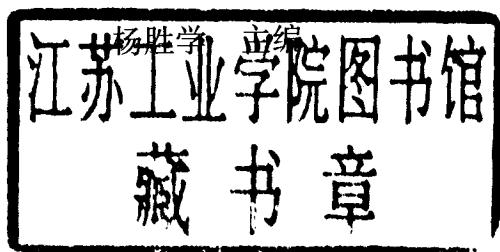 杨胜学 主编
江苏工业学院图书馆
藏书章